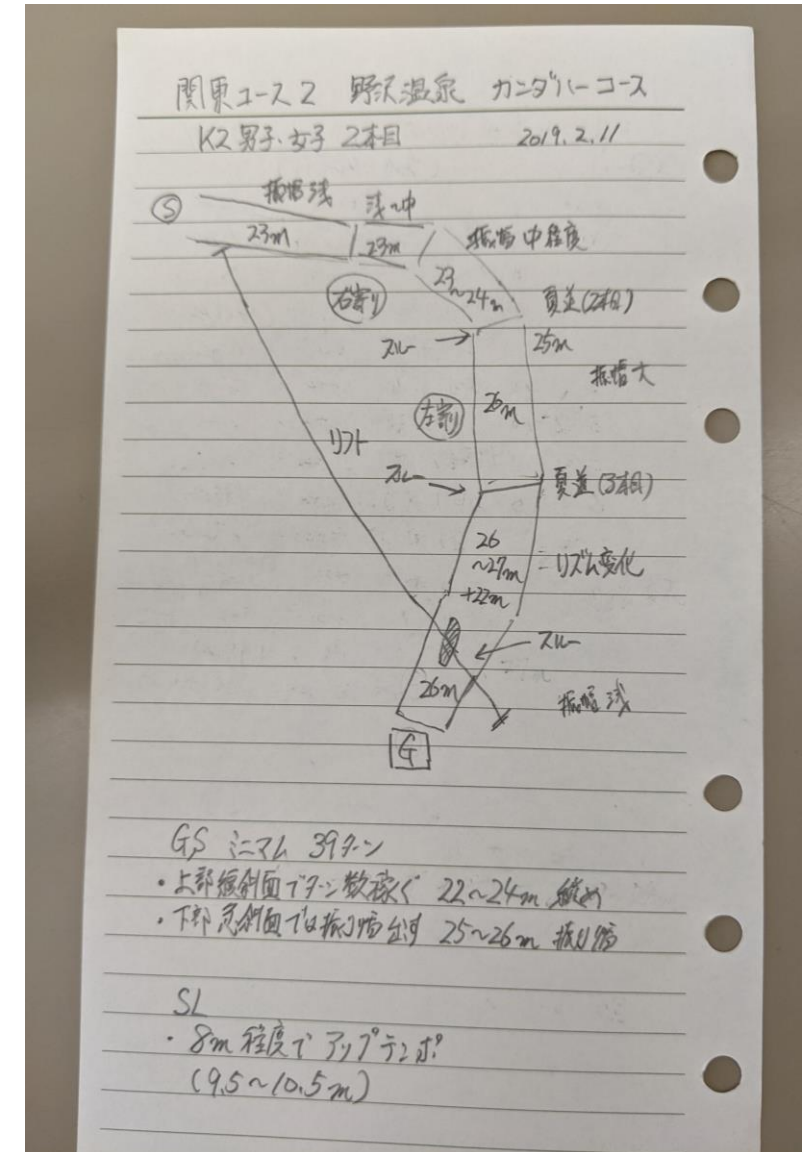 関東コース2 野沢温泉 カンダハーコース
K2男子・女子 2本目 2019.2.11
振幅浅 浅〜中
S
23m 23m 振幅中程度
右寄り 23〜24m 夏道(2本目)
スルー 25m
振幅大
左寄り 26m
リフト
スルー 夏道(3本目)
26〜27m+22m リズム変化
スルー
26m 振幅浅
G
GS ミニマム 39ターン
・上部緩斜面でターン数稼ぐ 22〜24m 縦め
・下部急斜面では振り幅出す 25〜26m 振り幅
SL
・8m程度でアップテンポ
(9.5〜10.5m)